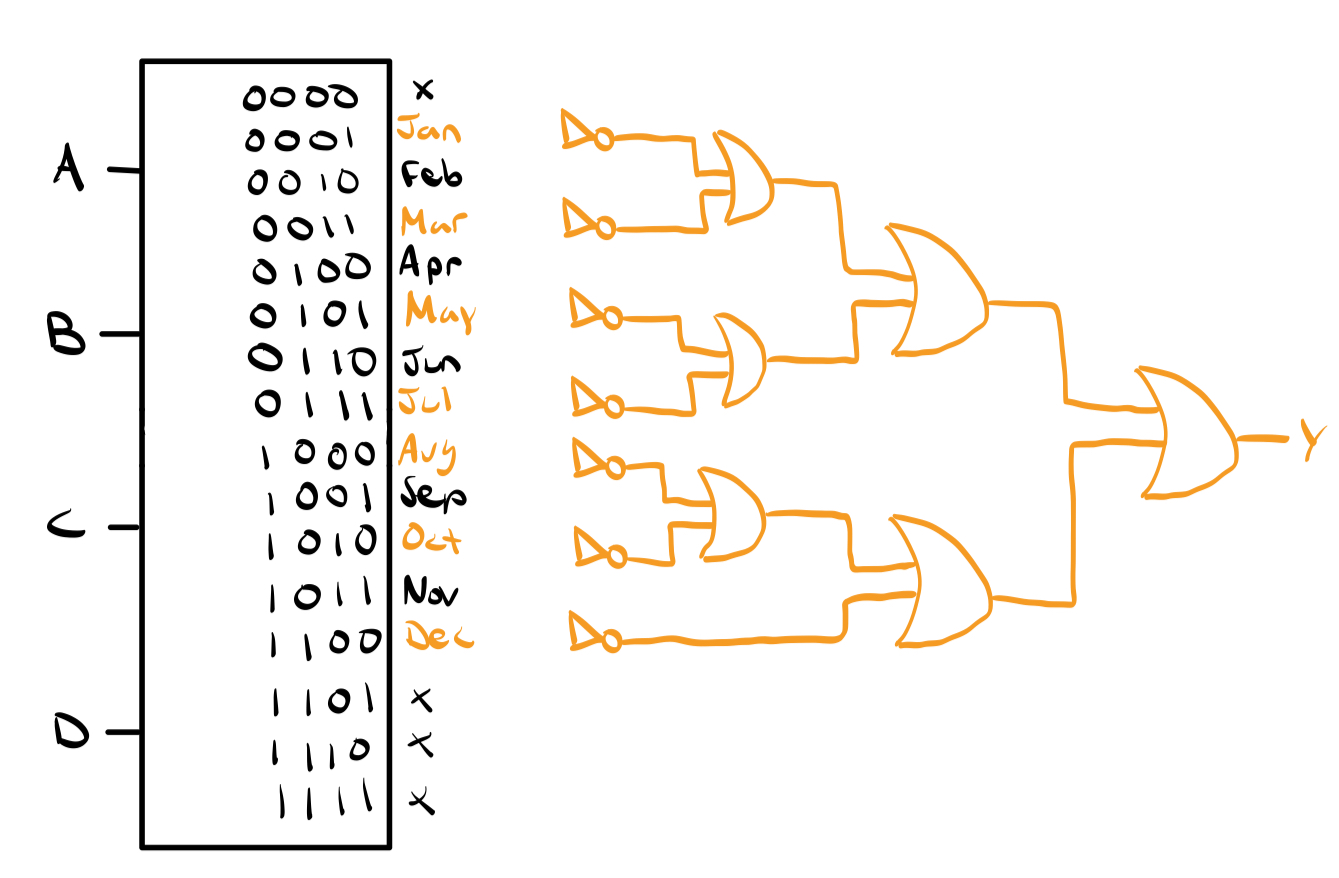 0000 x
0001 Jan
A
0010 Feb
0011 Mar
0100 Apr
0101 May
B
0110 Jun
0111 Jul
1000 Aug
1001 Sep
C
1010 Oct
1011 Nov
1100 Dec
1101 x
D
1110 x
1111 x
Y